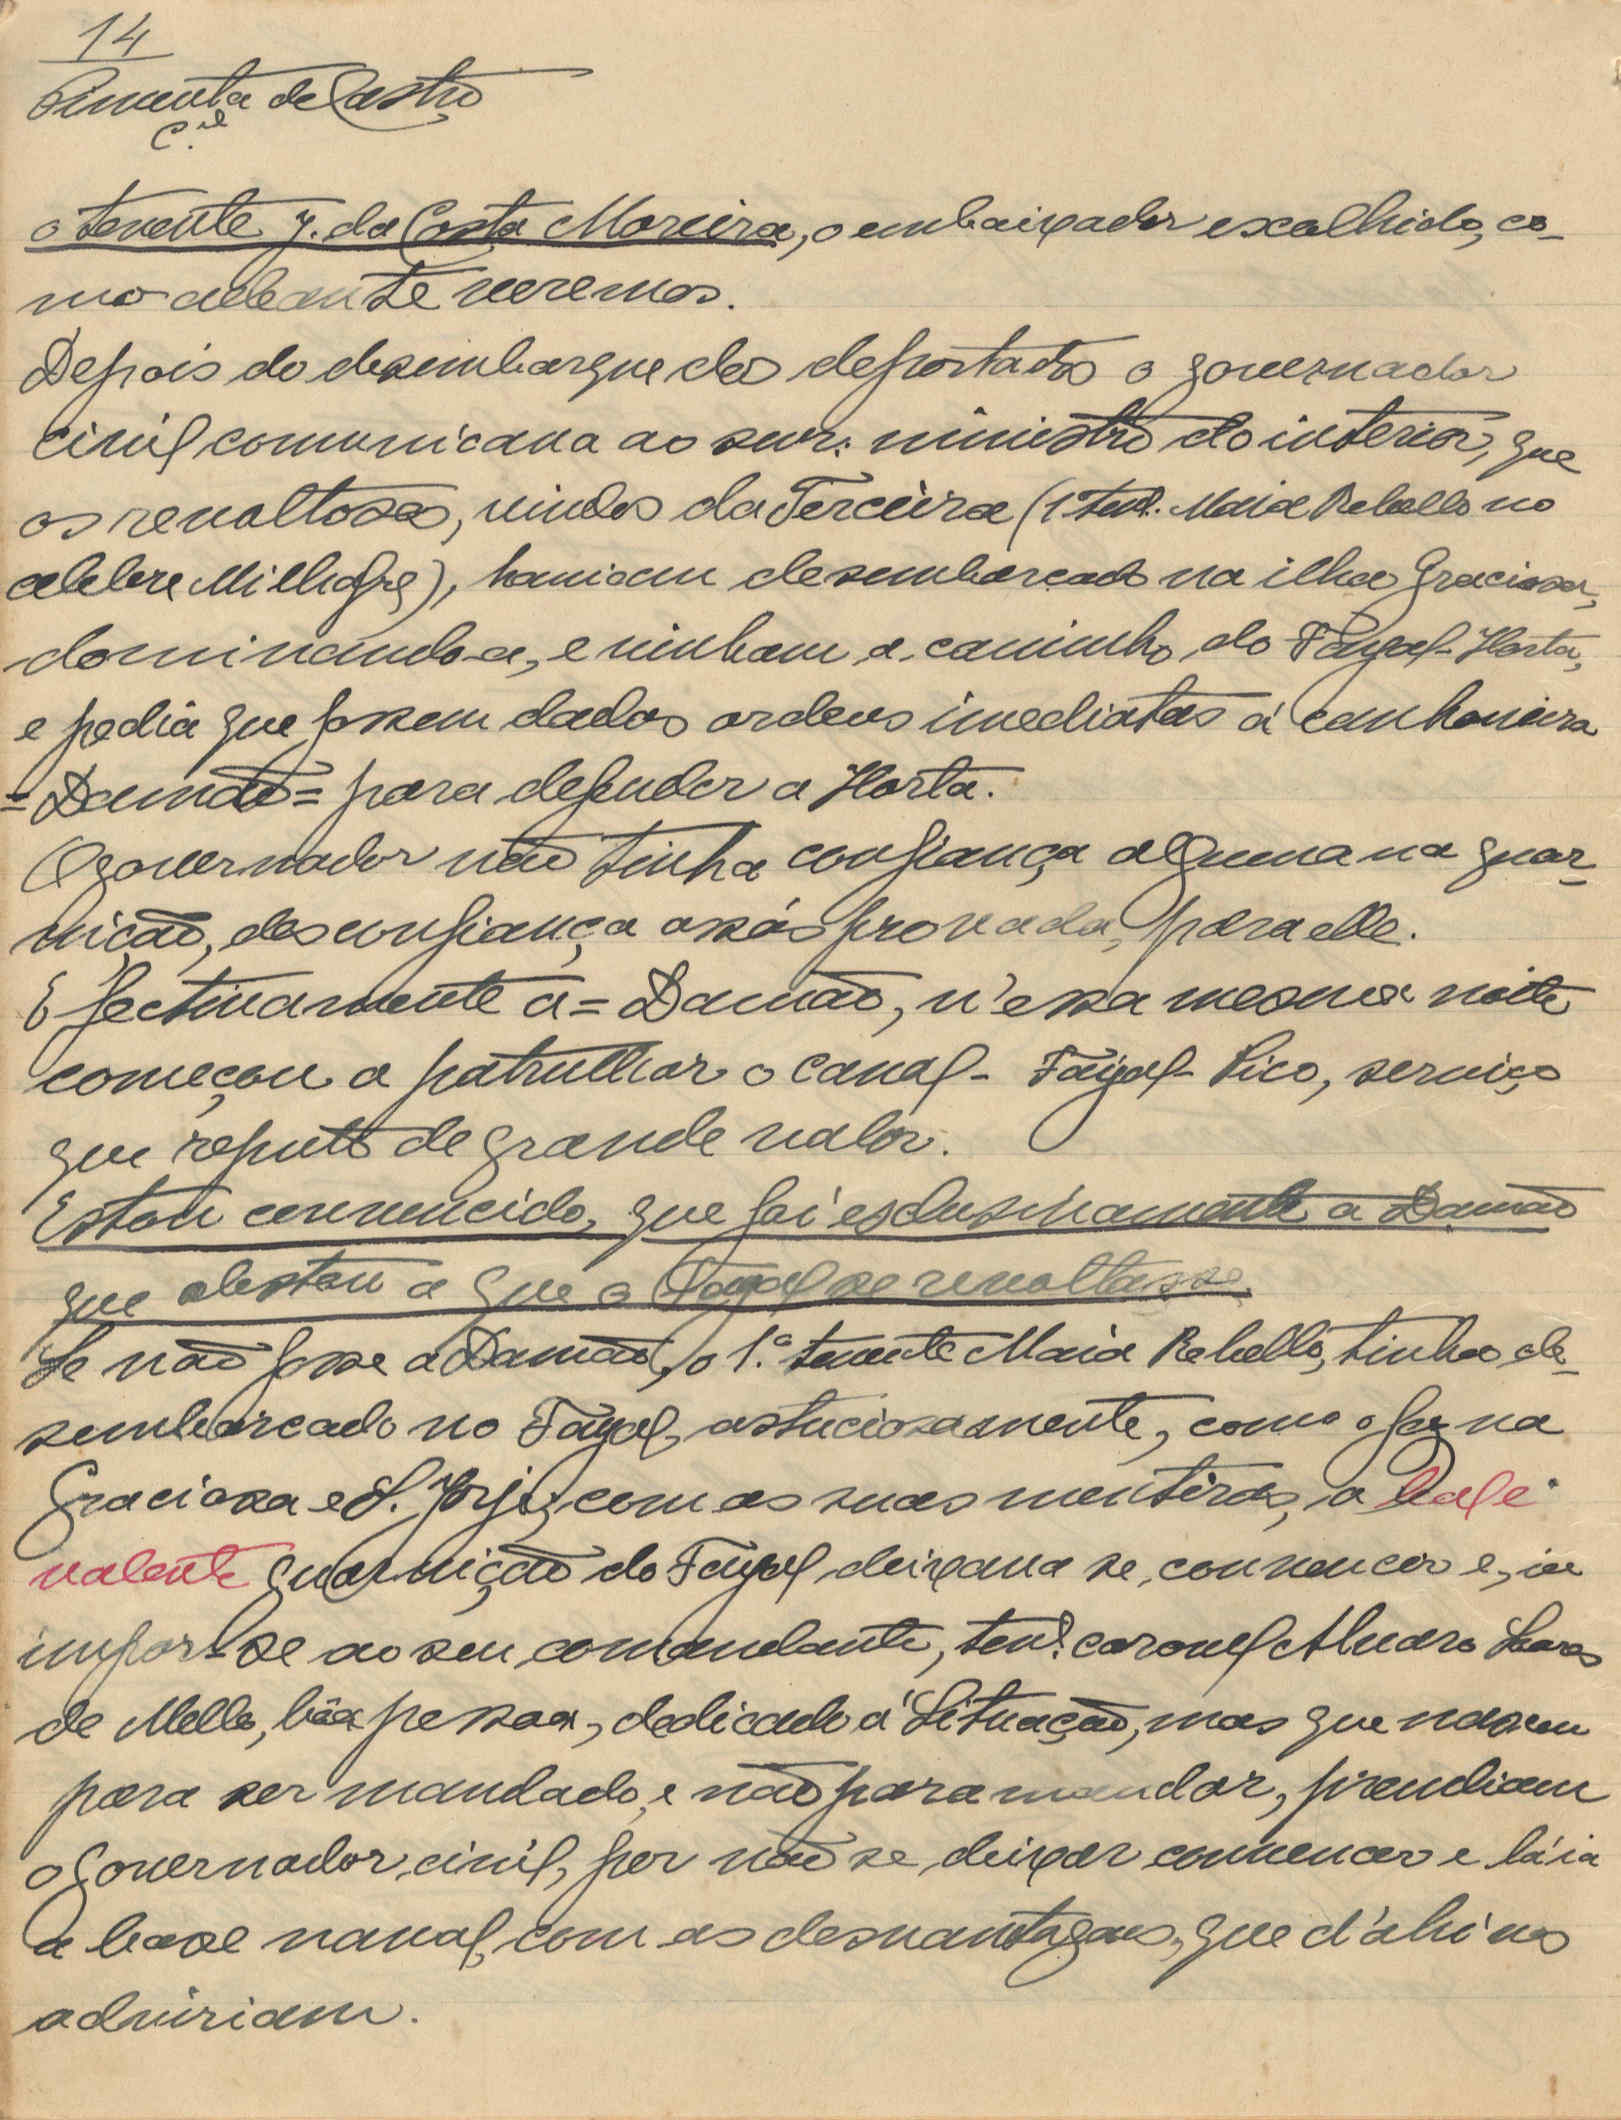 14
Pimenta de Castro
C.el
o tenente J. da Costa Moreira, o embaixador escolhido, co-
mo adeante veremos.
Depois do desembarque dos deportados o governador
civil comunicava ao snr. ministro do interior, que
os revoltosos, vindos da Terceira (1º tent. Maia Rebello no
celebre Milhafre), haviam desembarcado na ilha Graciosa,
dominando-a, e vinham a caminho do Fayal-Horta,
e pedia que fossem dadas ordens imediatas á canhoneira
=Damão= para defender a Horta.
O governador não tinha confiança alguma na guar-
nição, desconfiança assás provada, para elle.
Efectivamente a = Damão, n'essa mesma noite
começou a patrulhar o canal - Fayal - Pico, serviço
que reputo de grande valor.
Estou convencido, que foi esclusivamente a Damão
que obstou a que o Fayal se revoltasse.
Se não fosse a Damão, o 1.º tenente Maia Rebello, tinha de-
sembarcado no Fayal, astuciosamente, como o fez na
Graciosa e S. Jorje, com as suas mentiras, a leal e
valente guarnição do Fayal deixava se convencer e, ia
impor-se ao seu comandante, ten.te coronel Alvaro Soares
de Mello, bôa pessoa, dedicado á Situação, mas que nasceu
para ser mandado, e não para mandar, prendiam
o governador civil, por não se deixar convencer e lá ia
a base naval, com as desvantagens, que d'ahi nos
adviriam.